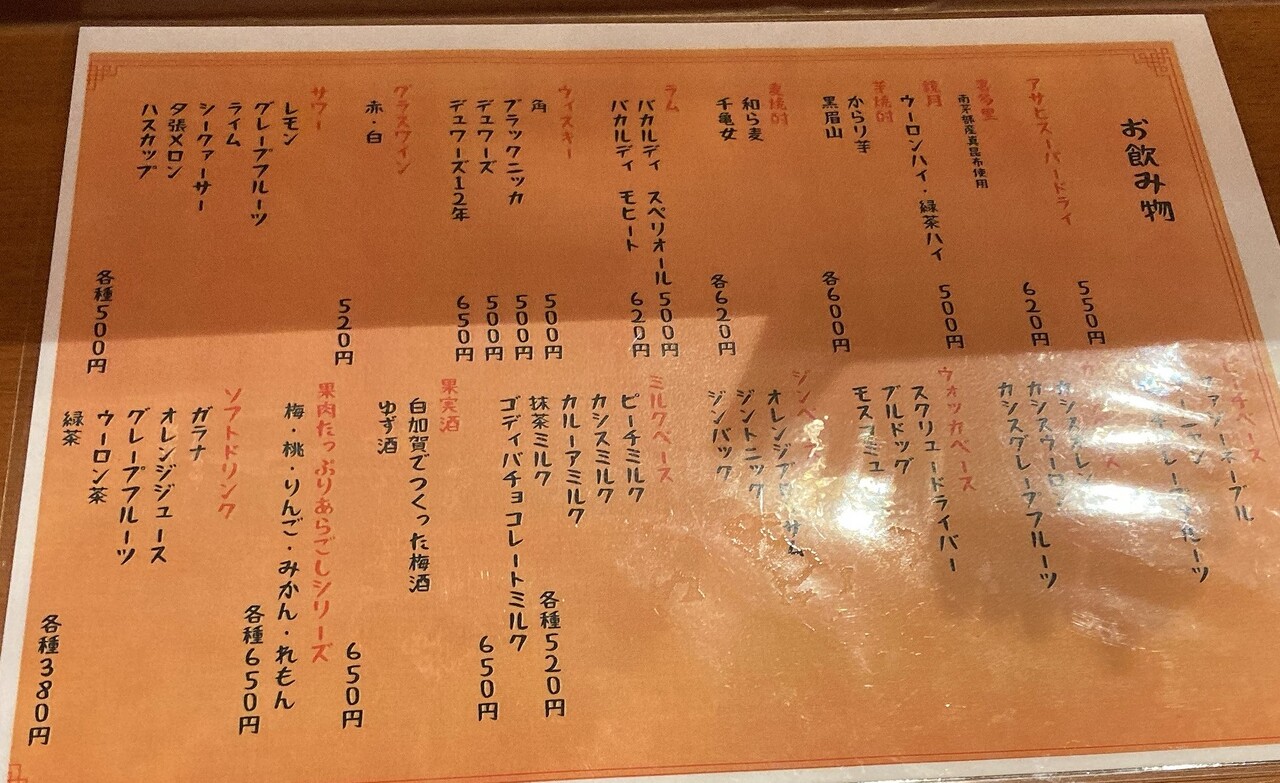 お飲み物
アサヒスーパードライ
550円
喜多里
南茅部産真昆布使用
620円
鏡月
ウーロンハイ・緑茶ハイ
500円
芋焼酎
からり芋
黒眉山
各600円
麦焼酎
和ら麦
千亀女
各620円
ラム
バカルディ スペリオール 500円
バカルディ モヒート 620円
ウィスキー
角 500円
ブラックニッカ 500円
デュワーズ 500円
デュワーズ12年 650円
グラスワイン
赤・白
520円
サワー
レモン
グレープフルーツ
ライム
シークァーサー
夕張メロン
ハスカップ
各種500円
ピーチベース
ファジーネーブル
カシスウーロン
カシスグレープフルーツ
ウォッカベース
スクリュードライバー
ブルドッグ
モスコミュ
ジンベース
オレンジブロッサム
ジントニック
ジンバック
ミルクベース
ピーチミルク
カシスミルク
カルーアミルク
抹茶ミルク
各種520円
ゴディバチョコレートミルク
650円
果実酒
白加賀でつくった梅酒
ゆず酒
650円
果肉たっぷりあらごしシリーズ
梅・桃・りんご・みかん・れもん
各種650円
ソフトドリンク
ガラナ
オレンジジュース
グレープフルーツ
ウーロン茶
緑茶
各種380円